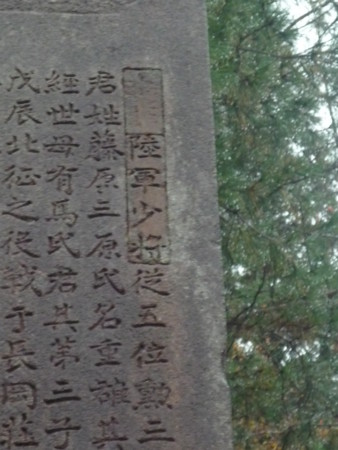 陸軍少將從五位勳三
君姓藤原三原氏名重雄其
經世母有馬氏君其第三子
戊辰北征之役戰于長岡莊